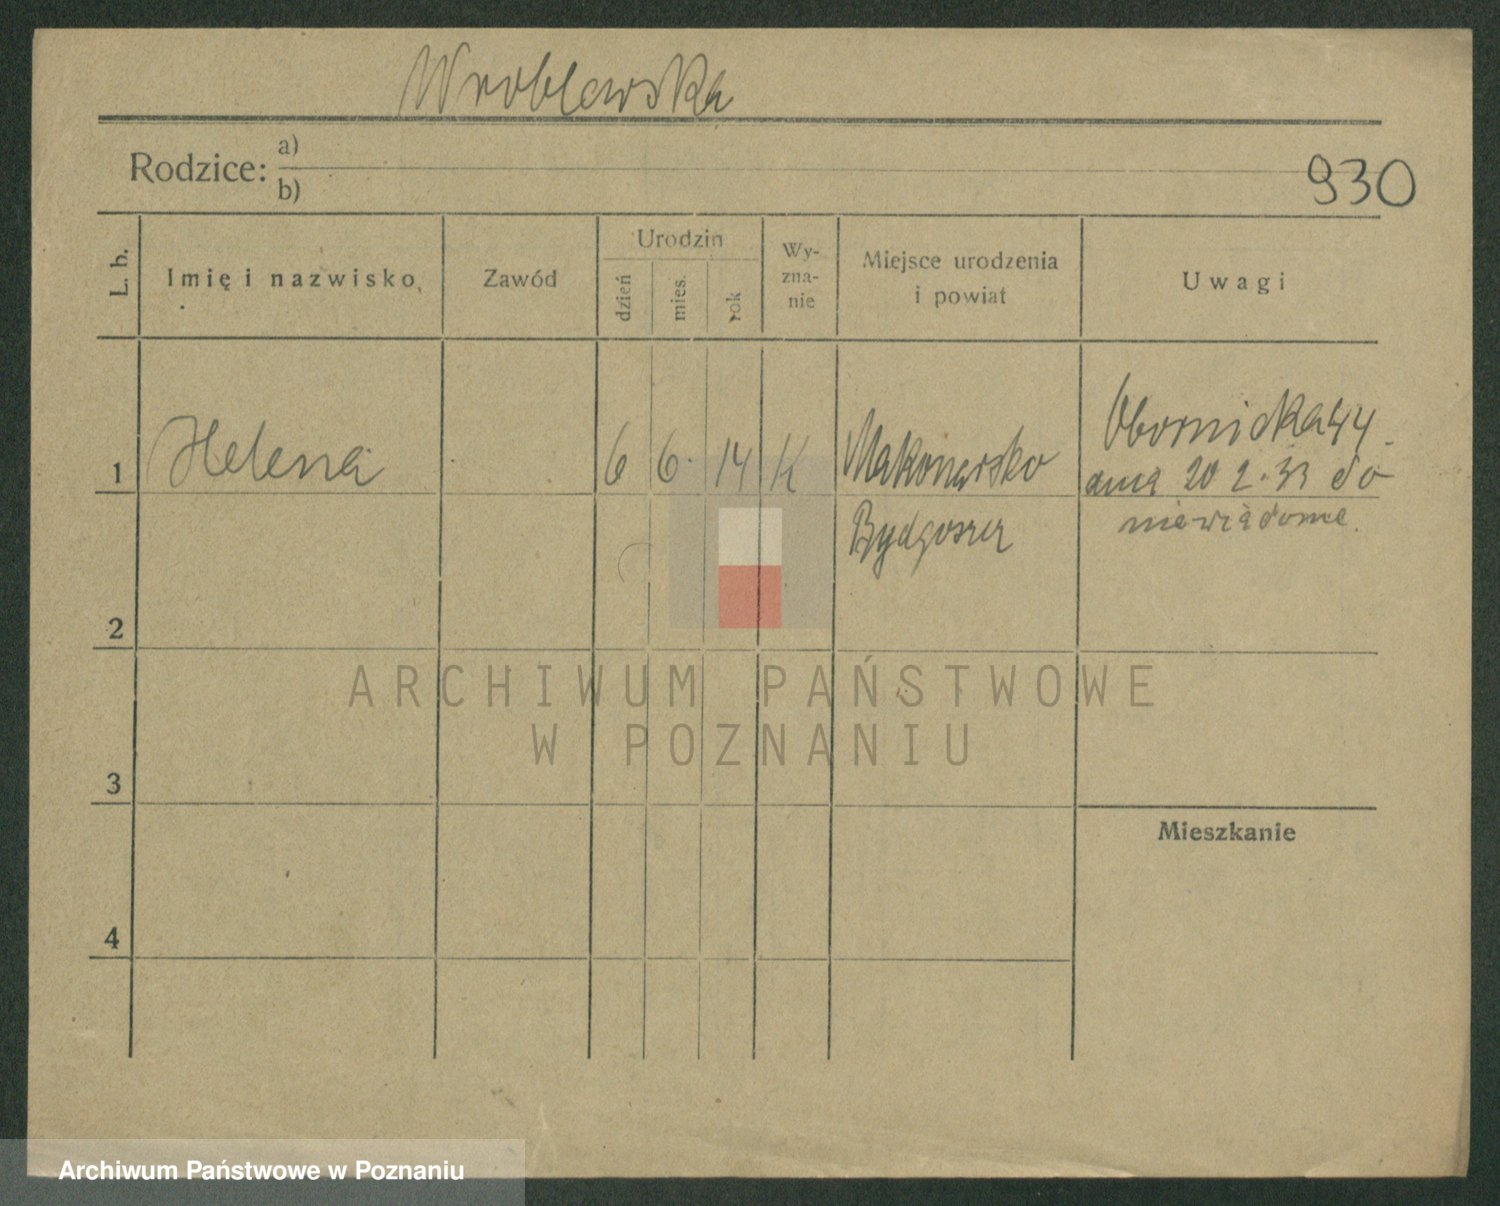 Wroblewska
Rodzice: a)
b)
930
L. b.
Imię i nazwisko
Zawód
Urodzin
dzień
mies.
rok
Wy-
zna-
nie
Miejsce urodzenia
i powiat
Uwagi
1 Helena 6 6. 14 K Makowarsko
Bydgoszcz
Obornicka 44.
dnia 20 2. 33 do
niewiadome.
2
3
4
Mieszkanie
ARCHIWUM PAŃSTWOWE
W POZNANIU
Archiwum Państwowe w Poznaniu